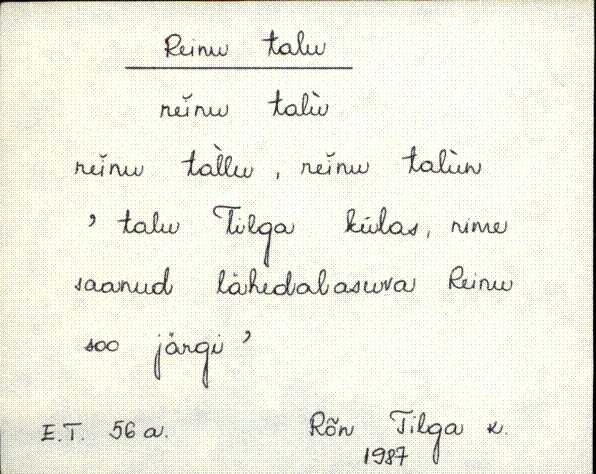 Reinu talu
reĭnu talù
reĭnu tàllu, reĭnu talùn
’ talu Tilga külas, nime
saanud lähedalasuva Reinu
soo järgi ’
E.T. 56 a. Rõn Tilga k.
1987